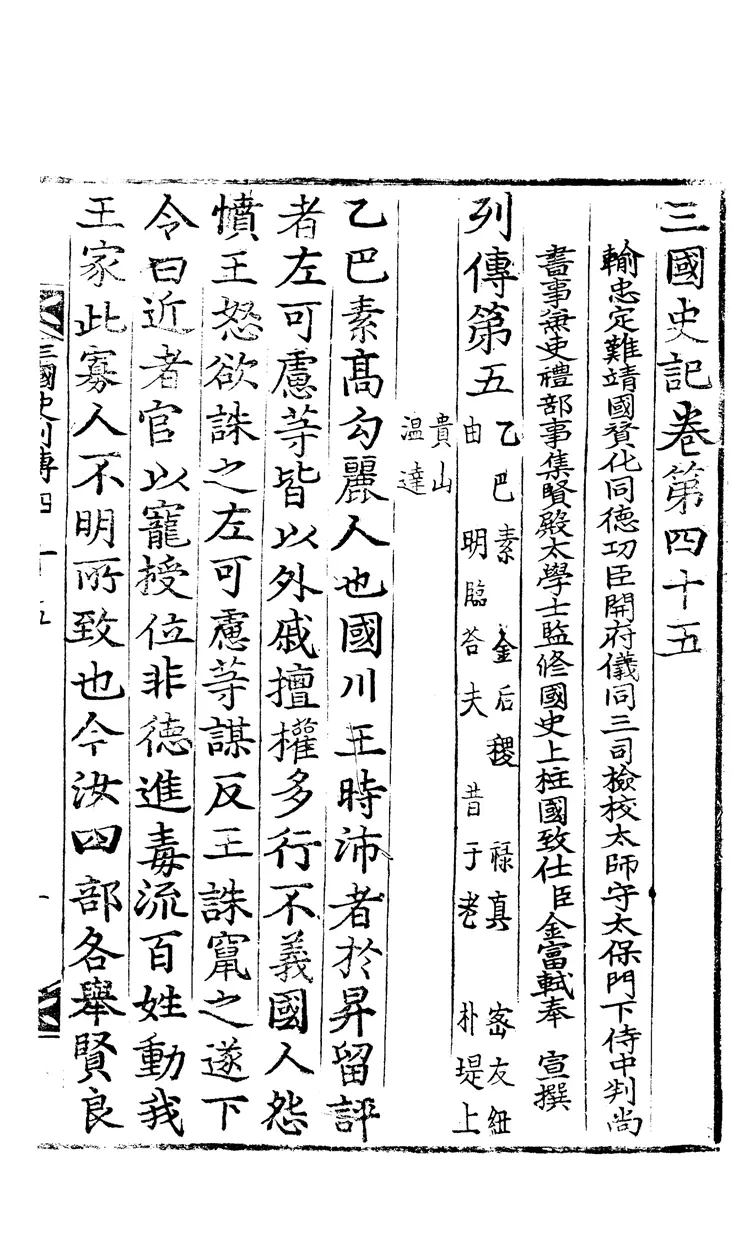 三國史記卷第四十五
輸忠定難靖國賛化同德功臣開府儀同三司檢校太師守太保門下侍中判尚
書事兼吏禮部事集賢殿太學士監修國史上柱國致仕臣金富軾奉 宣撰
列傳第五 乙巴素 金后稷 祿真 密友紐
由 明臨荅夫 昔于老 朴堤上
貴山
温達
乙巴素髙勾麗人也國川王時沛者於昇留評
者左可慮等皆以外戚擅權多行不義國人怨
憤王怒欲誅之左可慮等謀反王誅竄之遂下
令曰近者官以寵授位非德進毒流百姓動我
王家此寡人不明所致也今汝四部各舉賢良
三國史列傳四十五